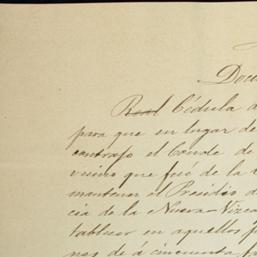 Docu
Real Cédula a
para que en lugar de
contrato el Conde de
vuino que fué de la
mantener el Presidio d
cia de la Nueva Vizca
tablecer en aquellos p
nos de á cincuenta